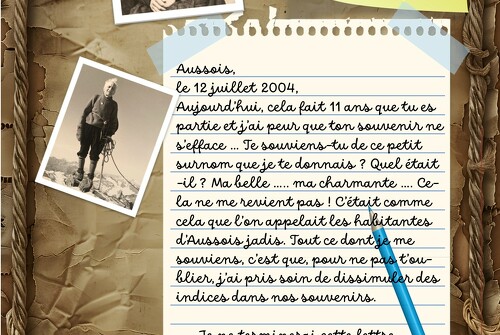 Aussois,
le 12 juillet 2004,
Aujourd'hui, cela fait 11 ans que tu es
partie et j'ai peur que ton souvenir ne
s'efface ... Te souviens-tu de ce petit
surnom que je te donnais ? Quel était
-il ? Ma belle ..... ma charmante .... Ce-
la ne me revient pas ! C'était comme
cela que l'on appelait les habitantes
d'Aussois jadis. Tout ce dont je me
souviens, c'est que, pour ne pas t'ou-
blier, j'ai pris soin de dissimuler des
indices dans nos souvenirs.
Je ne terminerai cette lettre